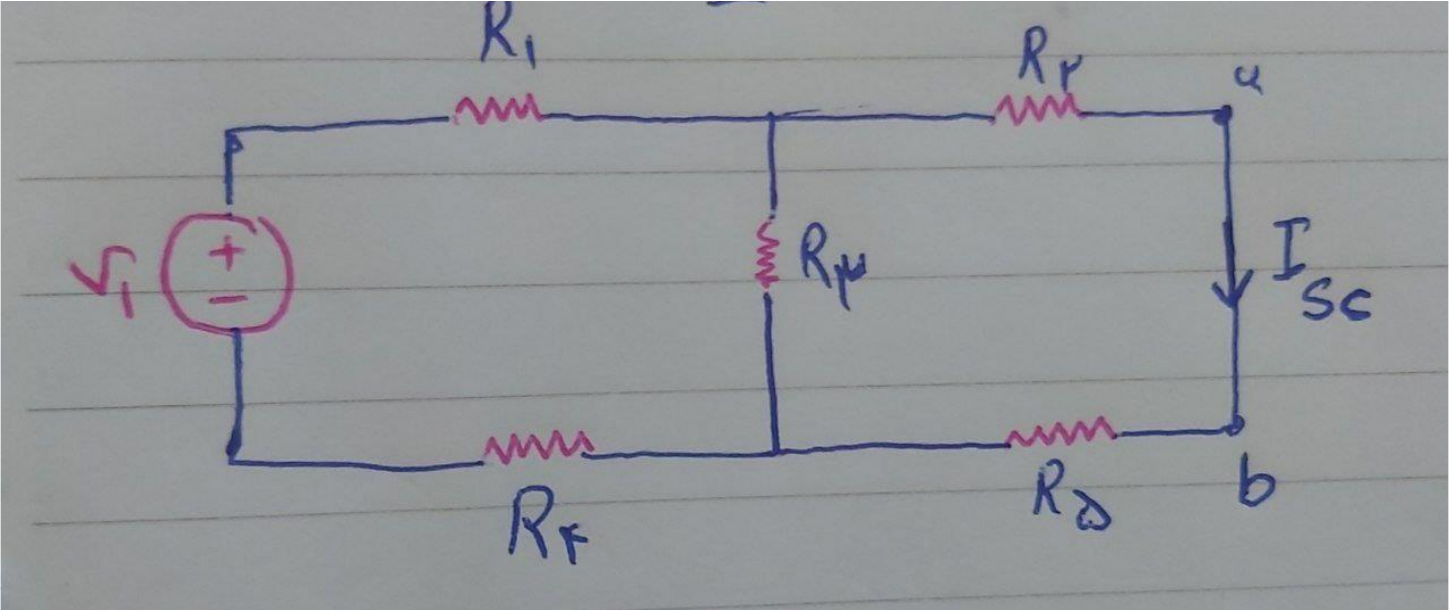 R۱
R۲
a
+
V۱
R۳
I sc
−
R۴
R۵
b